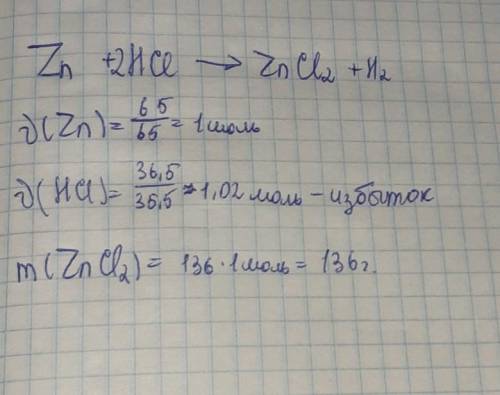 Zn + 2HCl → ZnCl₂ + H₂
ν(Zn) = 65/65 = 1 моль
ν(HCl) = 36,5/35,5 = 1,02 моль – избыток
m(ZnCl₂) = 136 · 1 моль = 136 г.